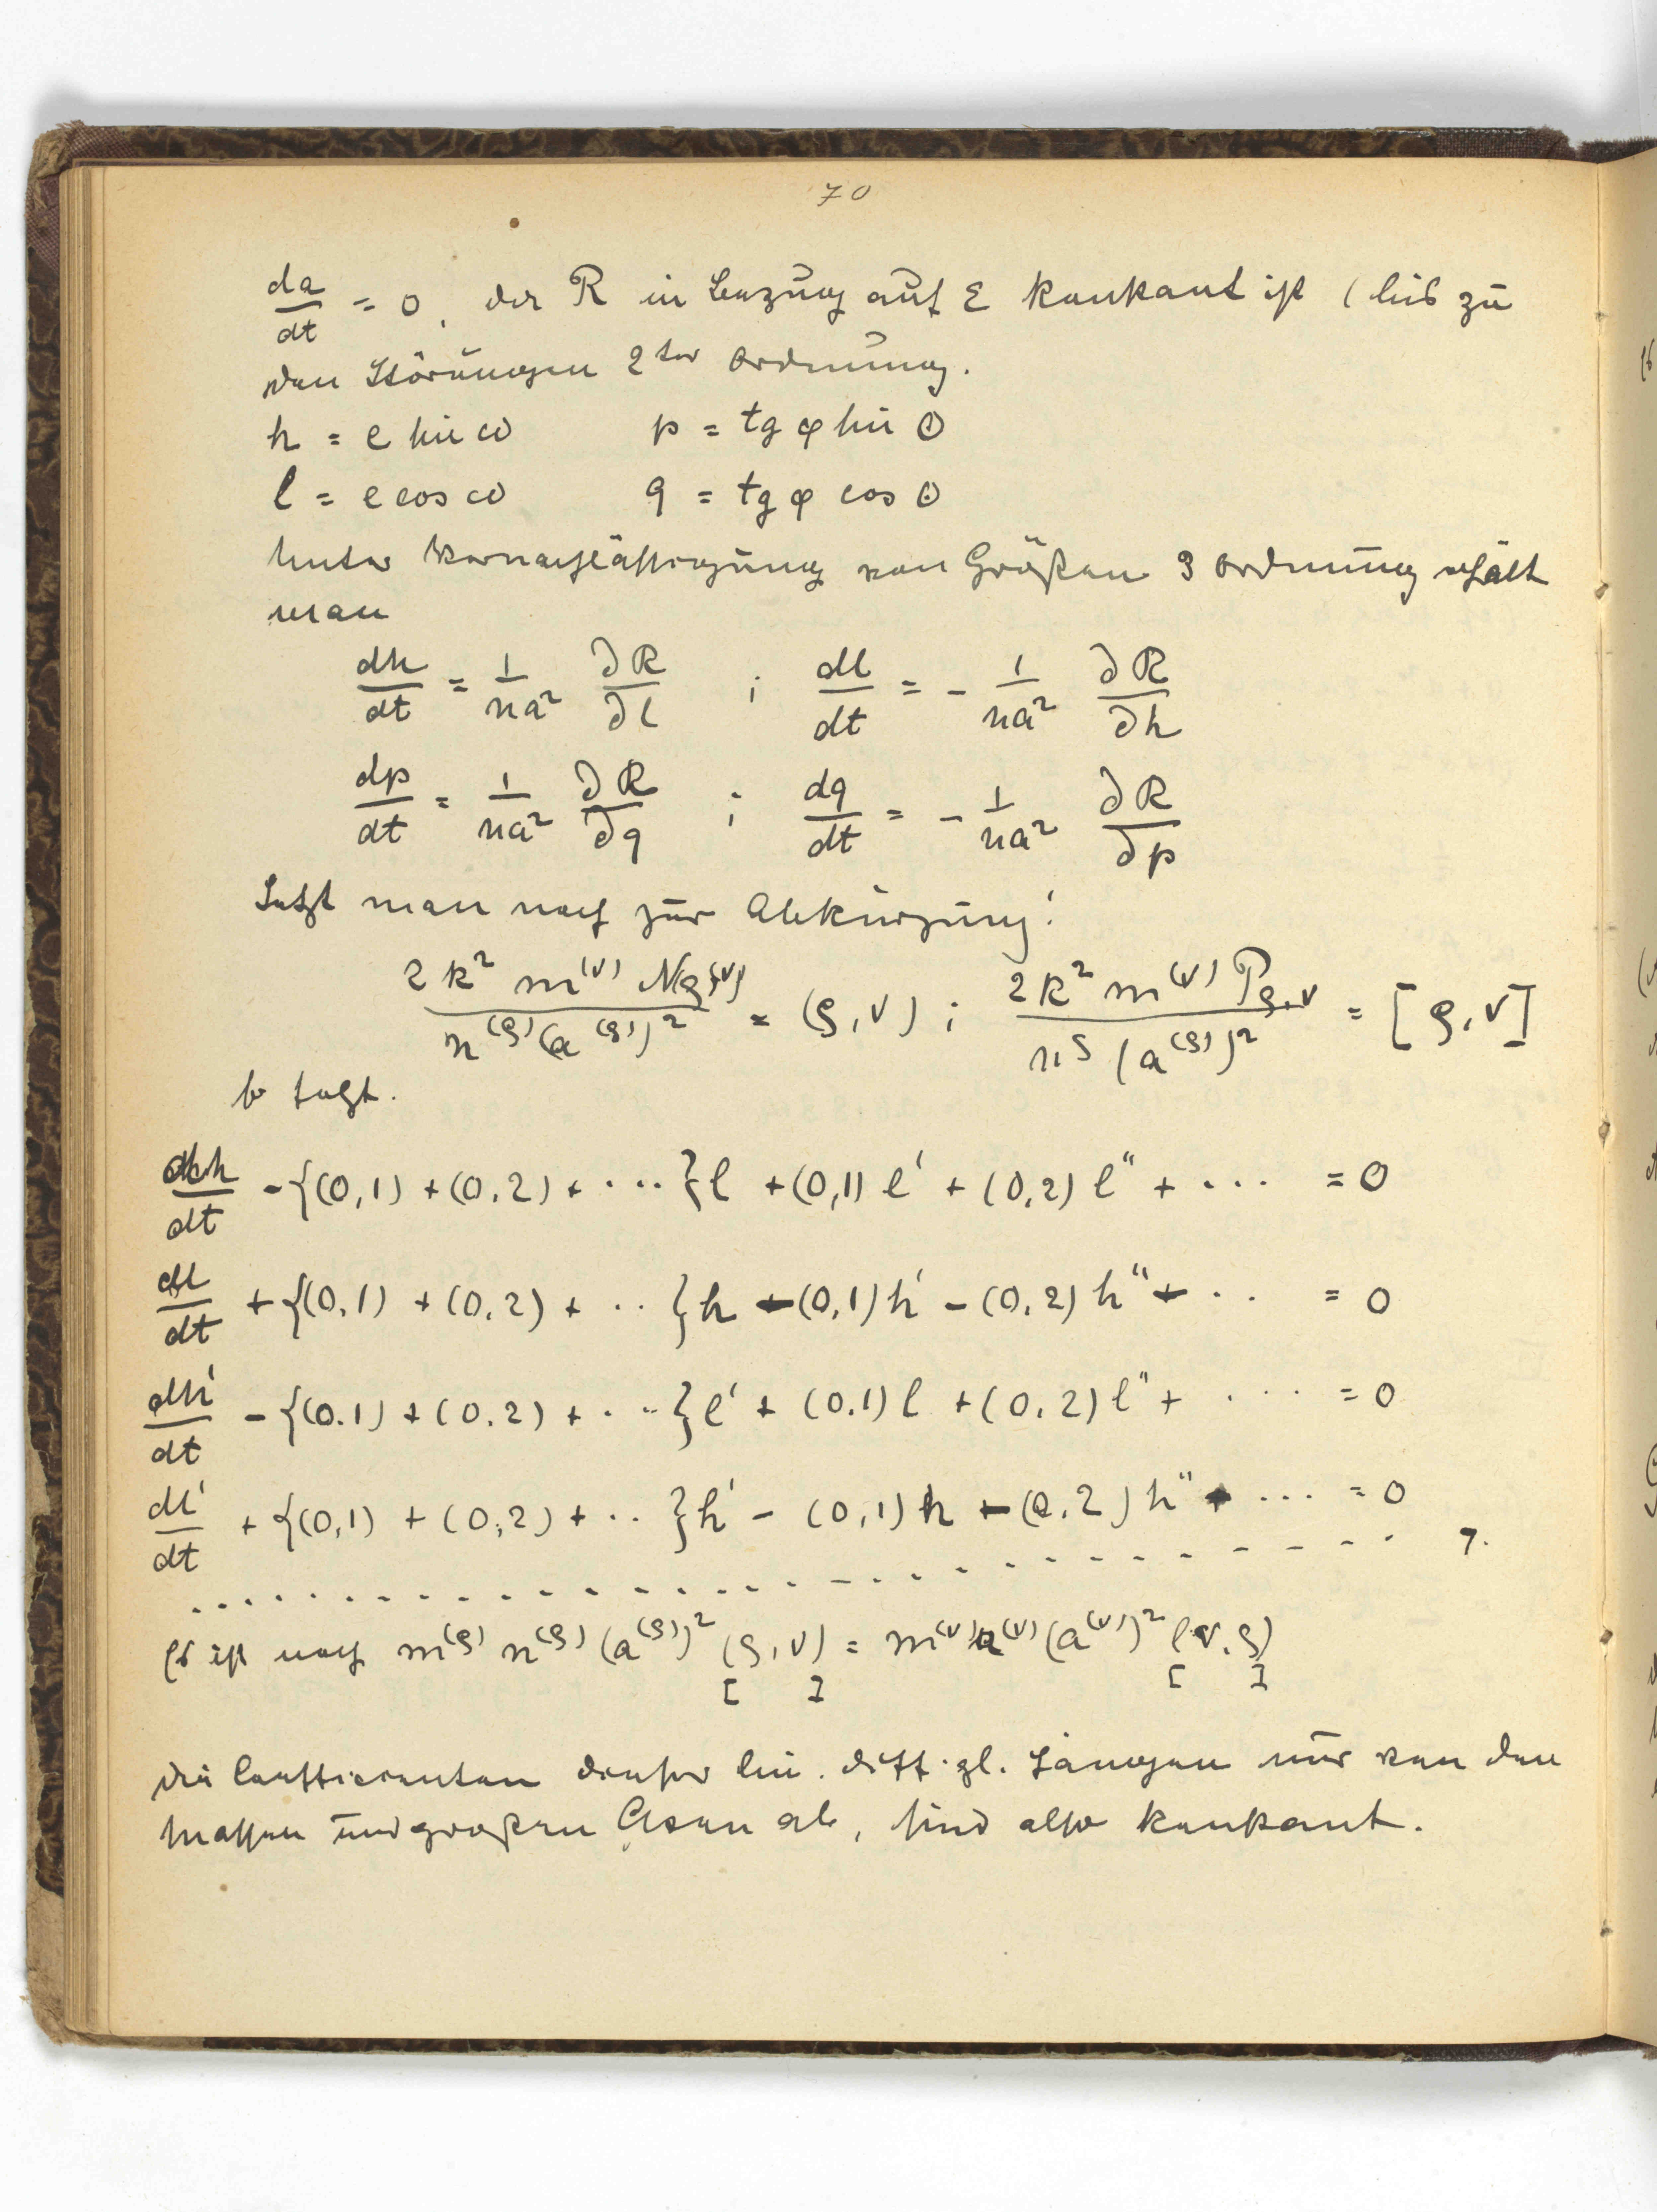 70
da/dt = 0, da R in Bezug auf ε konstant ist (bis zu
den Störungen 2ter Ordnung.
h = e sin ω p = tg φ sin Θ
l = e cos ω q = tg φ cos Θ
Unter Vernachlässigung von Größen 3 Ordnung erhält
man
dh/dt = 1/na² ∂R/∂l ; dl/dt = - 1/na² ∂R/∂h
dp/dt = 1/na² ∂R/∂q ; dq/dt = - 1/na² ∂R/∂p
Setzt man noch zur Abkürzung:
2k² m^(ν) N_ρ,ν / n^(ρ) (a^(ρ))² = (ρ,ν) ; 2k² m^(ν) P_ρ.ν / n^ρ (a^(ρ))² = [ρ,ν]
so folgt.
dh/dt - {(0,1) + (0,2) + ···· } l + (0,1) l' + (0,2) l'' + ··· = 0
dl/dt + {(0,1) + (0,2) + ·· } h - (0,1) h' - (0,2) h'' + ·· = 0
dh'/dt - {(0.1) + (0.2) + ···· } l' + (0.1) l + (0.2) l'' + ···· = 0
dl'/dt + {(0,1) + (0,2) + ·· } h' - (0,1) h - (0.2) h'' ··· = 0
7.
Es ist noch m^(ρ) n^(ρ) (a^(ρ))² (ρ,ν) = m^(ν) n^(ν) (a^(ν))² (ν.ρ)
[ ] [ ]
Die Coefficienten dieser lin. diff. gl. hängen nur von den
Massen und großen Axen ab, sind also konstant.